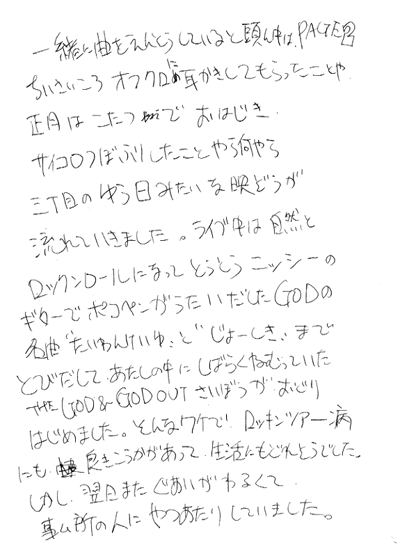 一緒に曲をえんそうしていると頭ん中は、PAGE
ちいさいころ オフクロに耳かきしてもらったことや
正月は こたつ でおはじき、
サイコロつぼふりしたことやら何やら
三丁目のゆう日みたいな映ぞうが
流れていきました。ライブ中は自然と
ロックンロールになって とうとう ニッシーの
ギターで ポコペンがうたいだした GODの
名曲“たいわんけいゆ„と“じょーしき„まで
とびだして、あたしの中に しばらくねむっていた
THE GOD & GOD OUT さいぼうが おどり
はじめました。そんなワケで、ロッキンツアー病
にも 良きこうかがあって、生活にもどれそうでした。
しかし、翌日また ぐあいがわるくて
事ム所の人に やつあたりしていました。